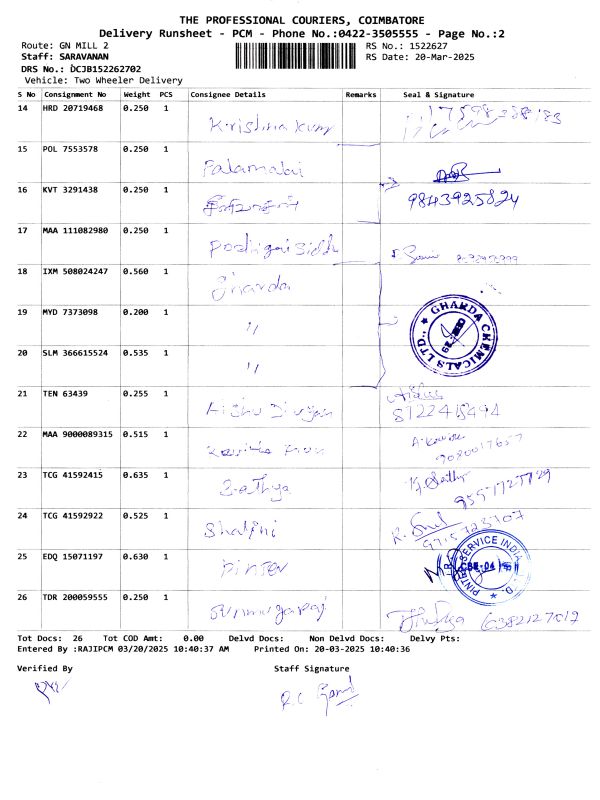 THE PROFESSIONAL COURIERS, COIMBATORE
Delivery Runsheet - PCM - Phone No.:0422-3505555 - Page No.:2
Route: GN MILL 2 RS No.: 1522627
Staff: SARAVANAN RS Date: 20-Mar-2025
DRS No.: DCJB152262702
Vehicle: Two Wheeler Delivery
S No Consignment No Weight PCS Consignee Details Remarks Seal & Signature
14 HRD 20719468 0.250 1
Krishna Kum
15 POL 7553578 0.250 1
Palamalai
16 KVT 3291438 0.250 1
9843925824
17 MAA 111082980 0.250 1
18 IXM 508024247 0.560 1
Gharda
19 MYD 7373098 0.200 1
"
GHARDA CHEMICALS LTD.,
20 SLM 366615524 0.535 1
"
21 TEN 63439 0.255 1
8122415494
22 MAA 9000089315 0.515 1
23 TCG 41592415 0.635 1
Sathya
24 TCG 41592922 0.525 1
Shalini
25 EDQ 15071197 0.630 1
SERVICE INDIA
26 TDR 200059555 0.250 1
6382127017
Tot Docs: 26 Tot COD Amt: 0.00 Delvd Docs: Non Delvd Docs: Delvy Pts:
Entered By :RAJIPCM 03/20/2025 10:40:37 AM Printed On: 20-03-2025 10:40:36
Verified By Staff Signature